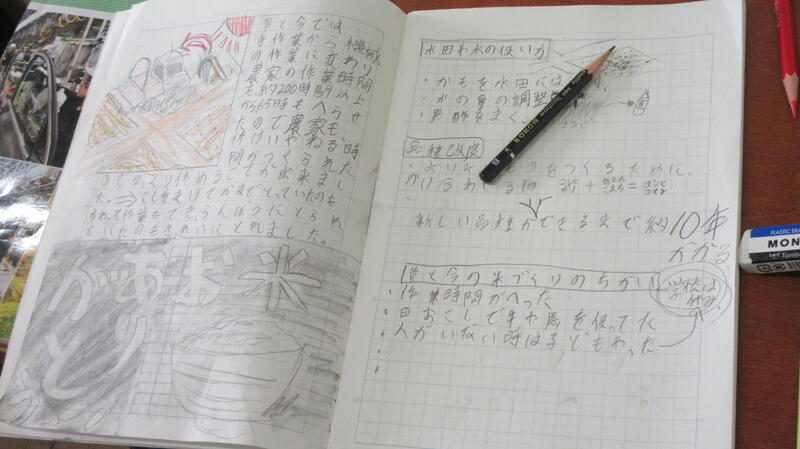 昔と今では
手作業から機械
の作業に変わり
農家の作業時間
も、約200時間以上
から65時
たので農家も
時
間がつくられた
のでゆっくり休めることが出来まし
た。
いたのもきれいにとれました。
お米
ありがとう
水田や水の使い方
・かもを水田には
・水の量の調整
・黒酢をまく。
品種改良
・よりよいものをつくるために、
かけ合わせる物
新しい品種ができるまで約10年
かかる
昔と今の米づくりのちがい
・作業時間がへった
・田おこしで牛や馬を使ってた
・人がいない時は子どもやった
学校は
休み
MONO
PLASTIC ERA
MON
Tomb